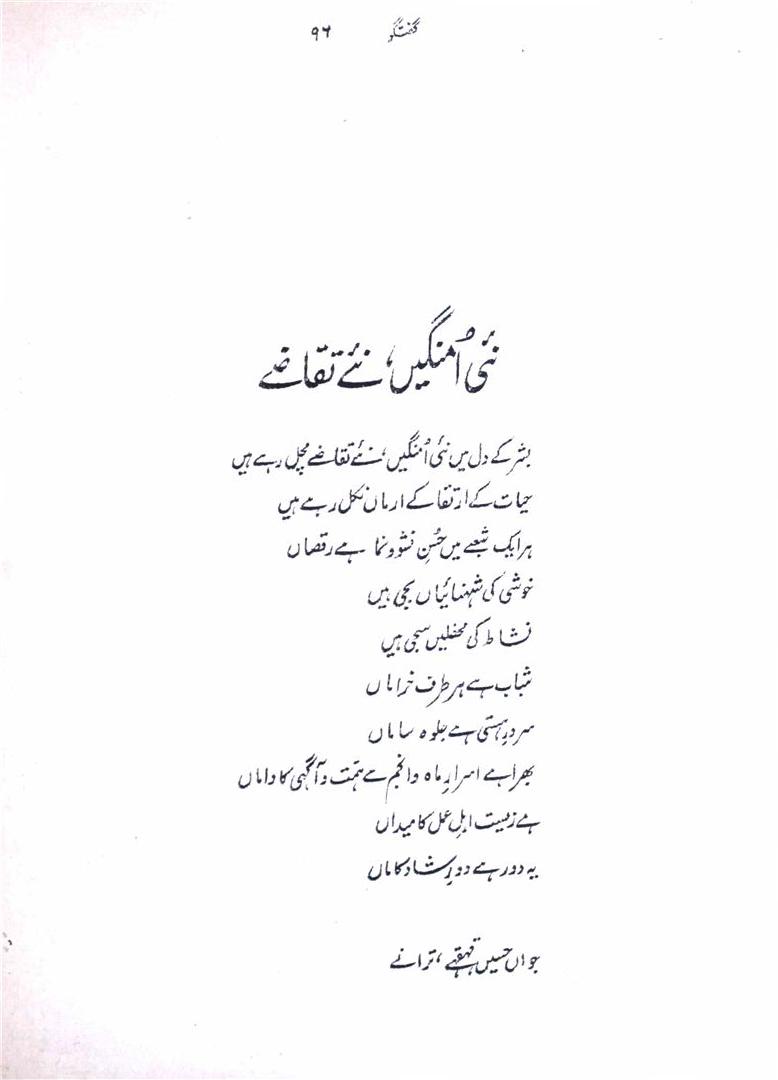 گفتگو ۹۶
نئی اُمنگیں، نئے تقاضے
بشر کے دل میں نئی اُمنگیں، نئے تقاضے مچل رہے ہیں
حیات کے ارتقا کے ارماں نکل رہے ہیں
ہر ایک شعبے میں حُسنِ نشوونما ہے رقصاں
خوشی کی شہنائیاں بجی ہیں
نشاط کی محفلیں سجی ہیں
شباب ہے ہر طرف خراماں
سرورِ ہستی ہے جلوہ ساماں
بھرا ہے اسرارِ ماہ و انجم سے ہمّت و آگہی کا داماں
ہے زیست اہلِ عمل کا میداں
یہ دور ہے دورِ شاد کاماں
جواں حسیں قہقہے، ترانے